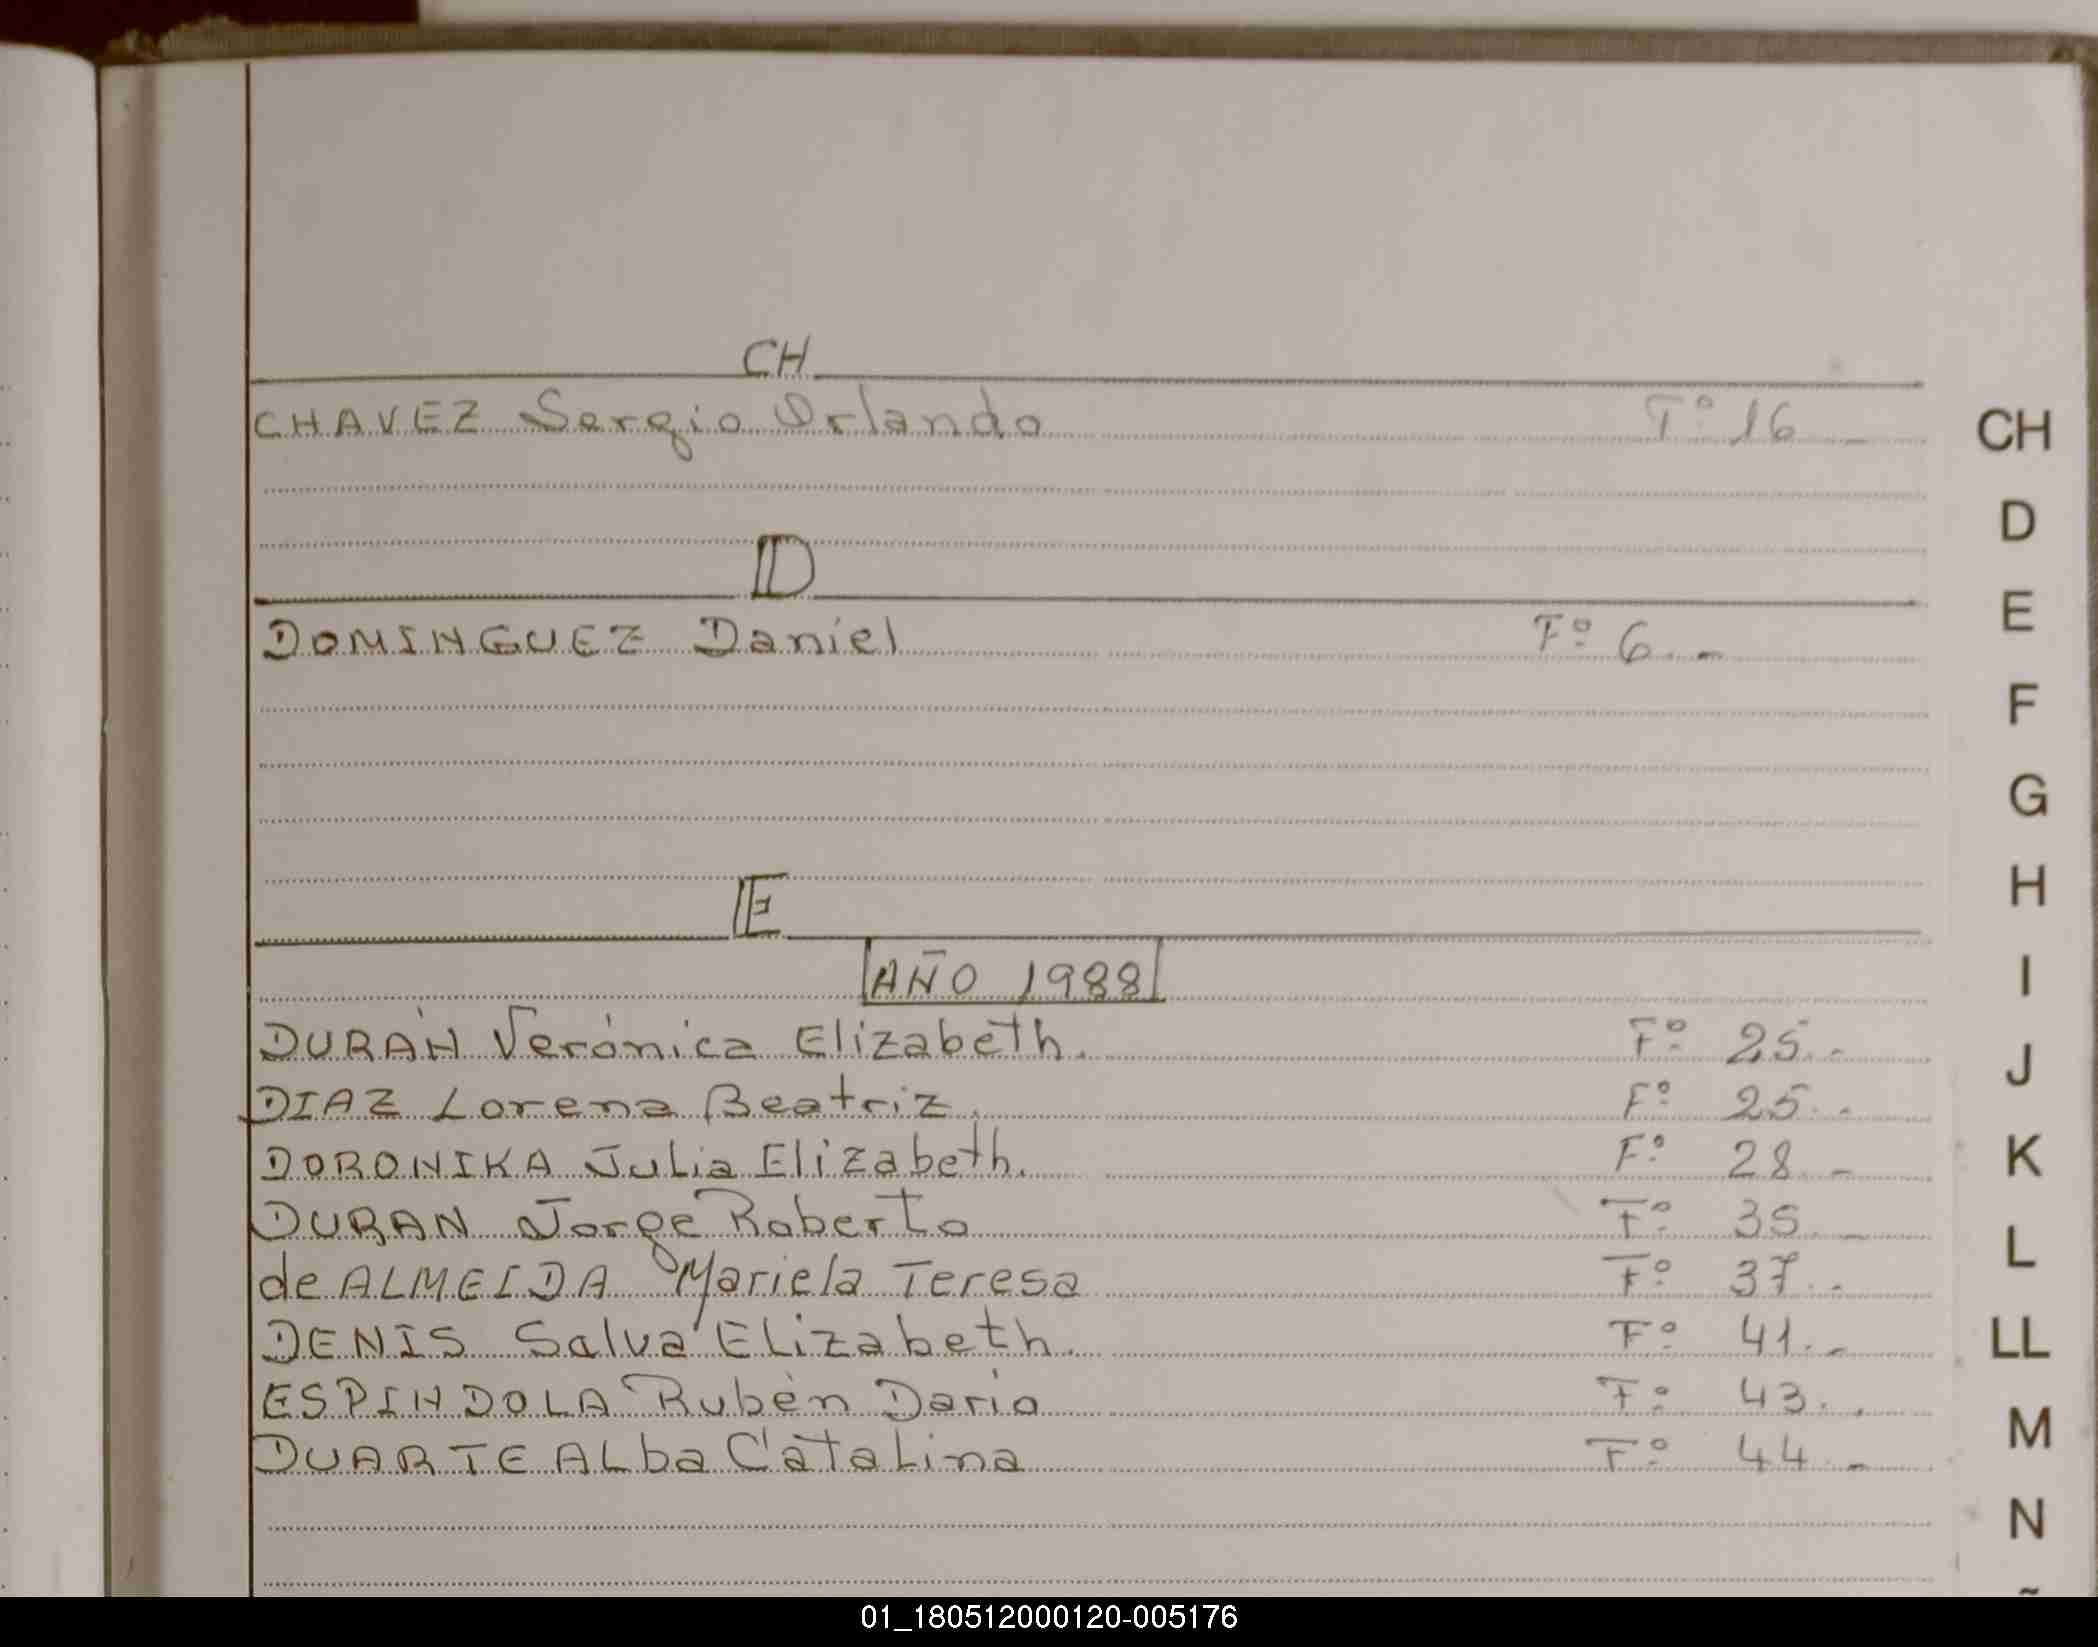 CH
CHAVEZ Sergio Orlando F° 16 -
D
DOMINGUEZ Daniel F° 6. -
E
AÑO 1988
DURÁN Verónica Elizabeth. F° 25. -
DIAZ Lorena Beatriz. F° 25. -
DORONIKA Julia Elizabeth. F° 28. -
DURAN Jorge Roberto F° 35. -
de ALMEIDA Mariela Teresa F° 37. -
DENIS Salva Elizabeth. F° 41. -
ESPINDOLA Rubén Dario F° 43. -
DUARTE Alba Catalina F° 44. -
CH
D
E
F
G
H
I
J
K
L
LL
M
N
01_180512000120-005176